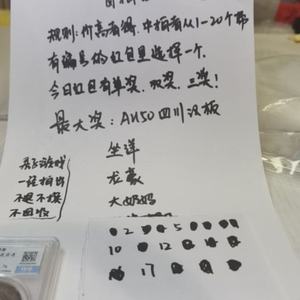 规则:价高者得,中拍者从1-20个带
有编号的红包里选择一个.
今日红包有单奖.双奖.三奖!
最大奖:AU50四川汉板
坐洋
龙豪
大奶妈
游戏
一经拍出
不退不换
2 5
10 12
17